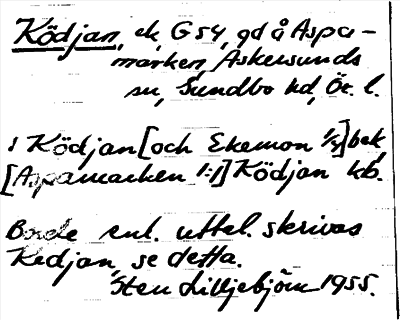 Ködjan, ek, G 54, gd å Aspa-
marken, Askersunds
sn, Sundbo hd, Ör. l.
1 Ködjan [och Ekemon 1/4] bek,
[Aspamarken 1:1] Ködjan kb.
Borde enl. uttal. skrivas
Kedjan, se detta.
Sten Lilljebjörn 1955.